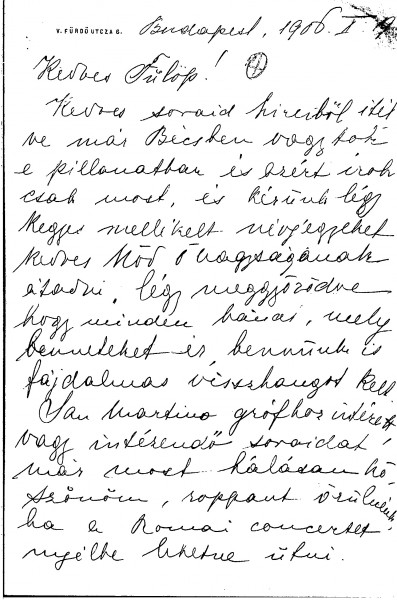 V. FÜRDŐ UTCZA 6.
Budapest, 1906. I
Kedves Fülöp!
Kedves soraid hireiből itél
ve már Bécsben vagytok
e pillanatban és ezért irok
csak most, és kérünk légy
kegyes mellékelt névjegyeket
kedves Nőd Ő nagyságának
átadni, légy meggyőződve
hogy minden bánat, mely
benneteket ér, bennünk is
fájdalmas visszhangot kelt
San Martino grófhoz intézett
vagy intézendő soraidat
már most hálásan kö
szönöm, roppant örülnénk
ha a Romai concertet
nyélbe lehetne ütni.